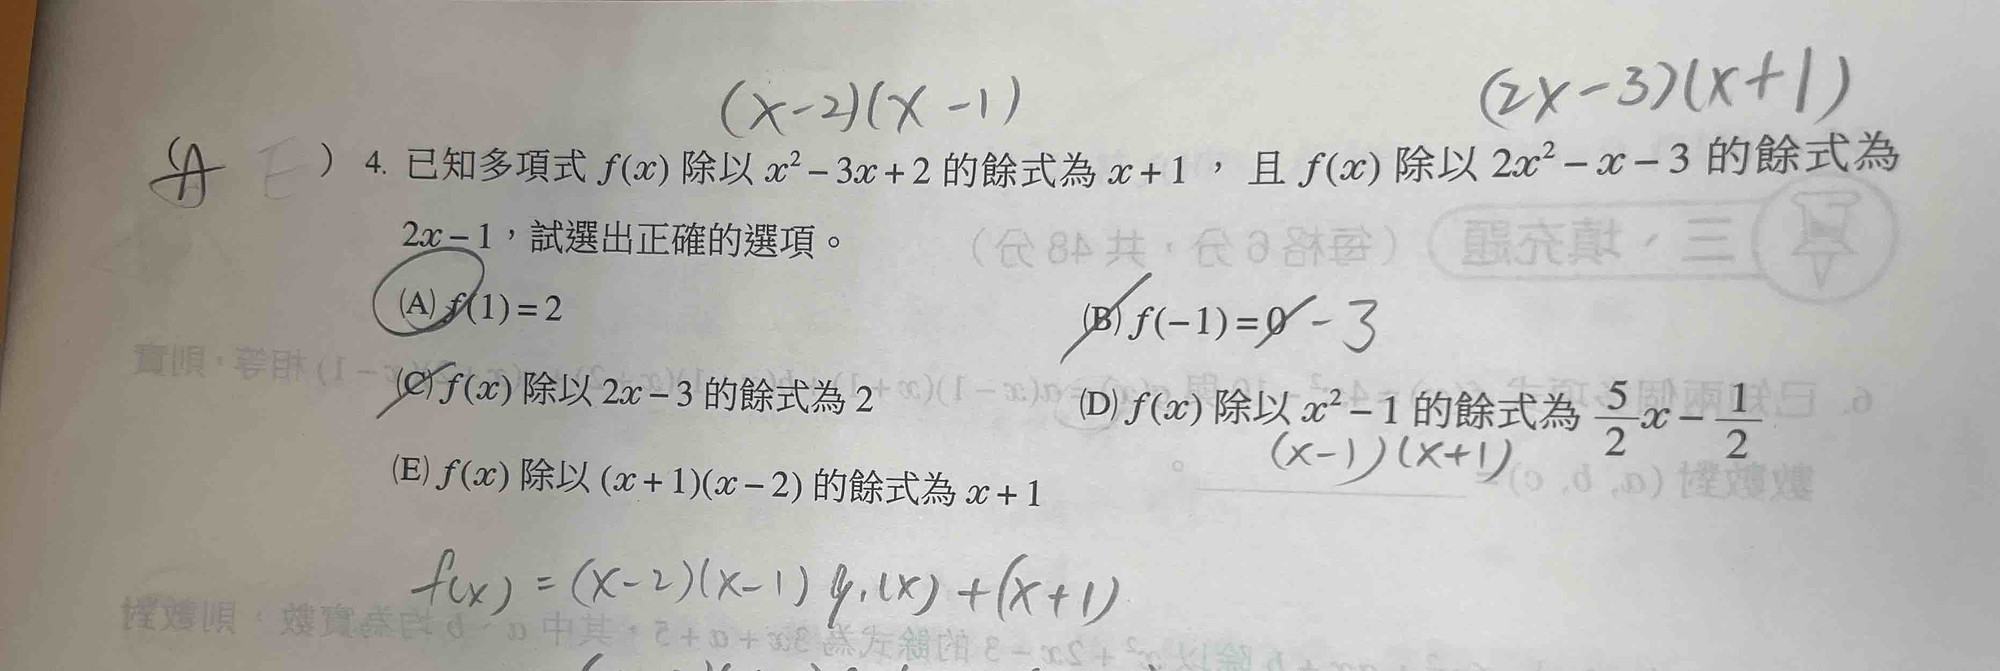 (x-2)(x-1)
(2x-3)(x+1)
(A E) 4. 已知多項式 f(x) 除以 x²-3x+2 的餘式為 x+1，且 f(x) 除以 2x²-x-3 的餘式為
2x-1，試選出正確的選項。
三、填充題（每格 6 分，共 48 分）
(A) f(1)=2
(B) f(-1)=0 -3
(C) f(x) 除以 2x-3 的餘式為 2
(D) f(x) 除以 x²-1 的餘式為 5/2 x - 1/2
(x-1)(x+1)
(E) f(x) 除以 (x+1)(x-2) 的餘式為 x+1
數數對 (a, b, c)
f(x) = (x-2)(x-1) q₁(x) + (x+1)